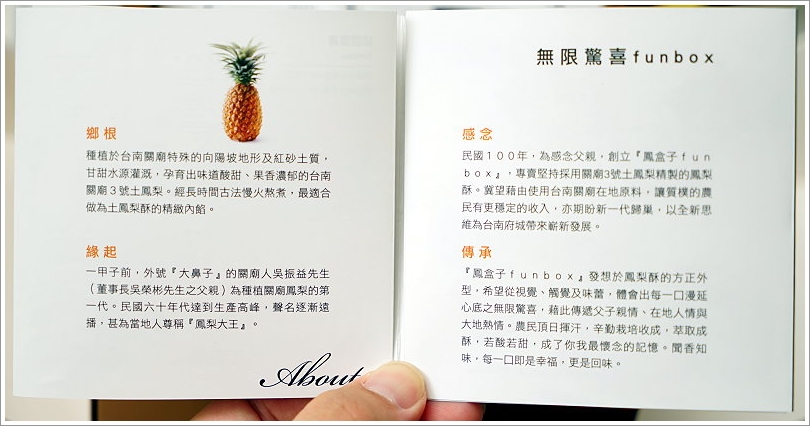 鄉根
種植於台南關廟特殊的向陽坡地形及紅砂土質，
甘甜水源灌溉，孕育出味道酸甜、果香濃郁的台南
關廟３號土鳳梨。經長時間古法慢火熬煮，最適合
做為土鳳梨酥的精緻內餡。
緣起
一甲子前，外號『大鼻子』的關廟人吳振益先生
（董事長吳榮彬先生之父親）為種植關廟鳳梨的第
一代。民國六十年代達到生產高峰，聲名逐漸遠
播，甚為當地人尊稱『鳳梨大王』。
About
無限驚喜funbox
感念
民國１００年，為感念父親，創立『鳳盒子ｆｕｎ
ｂｏｘ』，專賣堅持採用關廟3號土鳳梨精製的鳳梨
酥。冀望藉由使用台南關廟在地原料，讓質樸的農
民有更穩定的收入，亦期盼新一代歸巢，以全新思
維為台南府城帶來嶄新發展。
傳承
『鳳盒子ｆｕｎｂｏｘ』發想於鳳梨酥的方正外
型，希望從視覺、觸覺及味蕾，體會出每一口漫延
心底之無限驚喜，藉此傳遞父子親情、在地人情與
大地熱情。農民頂日揮汗，辛勤栽培收成，萃取成
酥，若酸若甜，成了你我最懷念的記憶。聞香知
味，每一口即是幸福，更是回味。